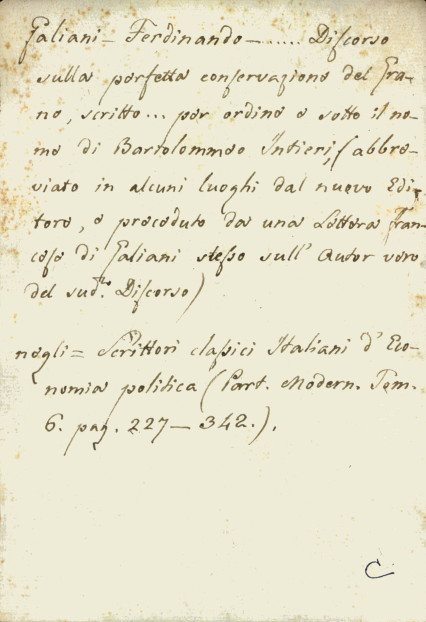 Galiani = Ferdinando — ..... Discorso
sulla perfetta conservazione del Gra-
no, scritto ... per ordine e sotto il no-
me di Bartolommeo Intieri, (abbre-
viato in alcuni luoghi dal nuovo Edi-
tore, e preceduto da una Lettera Fran-
cese di Galiani stesso sull' Autor vero
del sud.º Discorso)
negli = Scrittori classici Italiani d' Eco-
nomia politica (Part. Modern. Tom.
6. pag. 227 — 342.).
C.